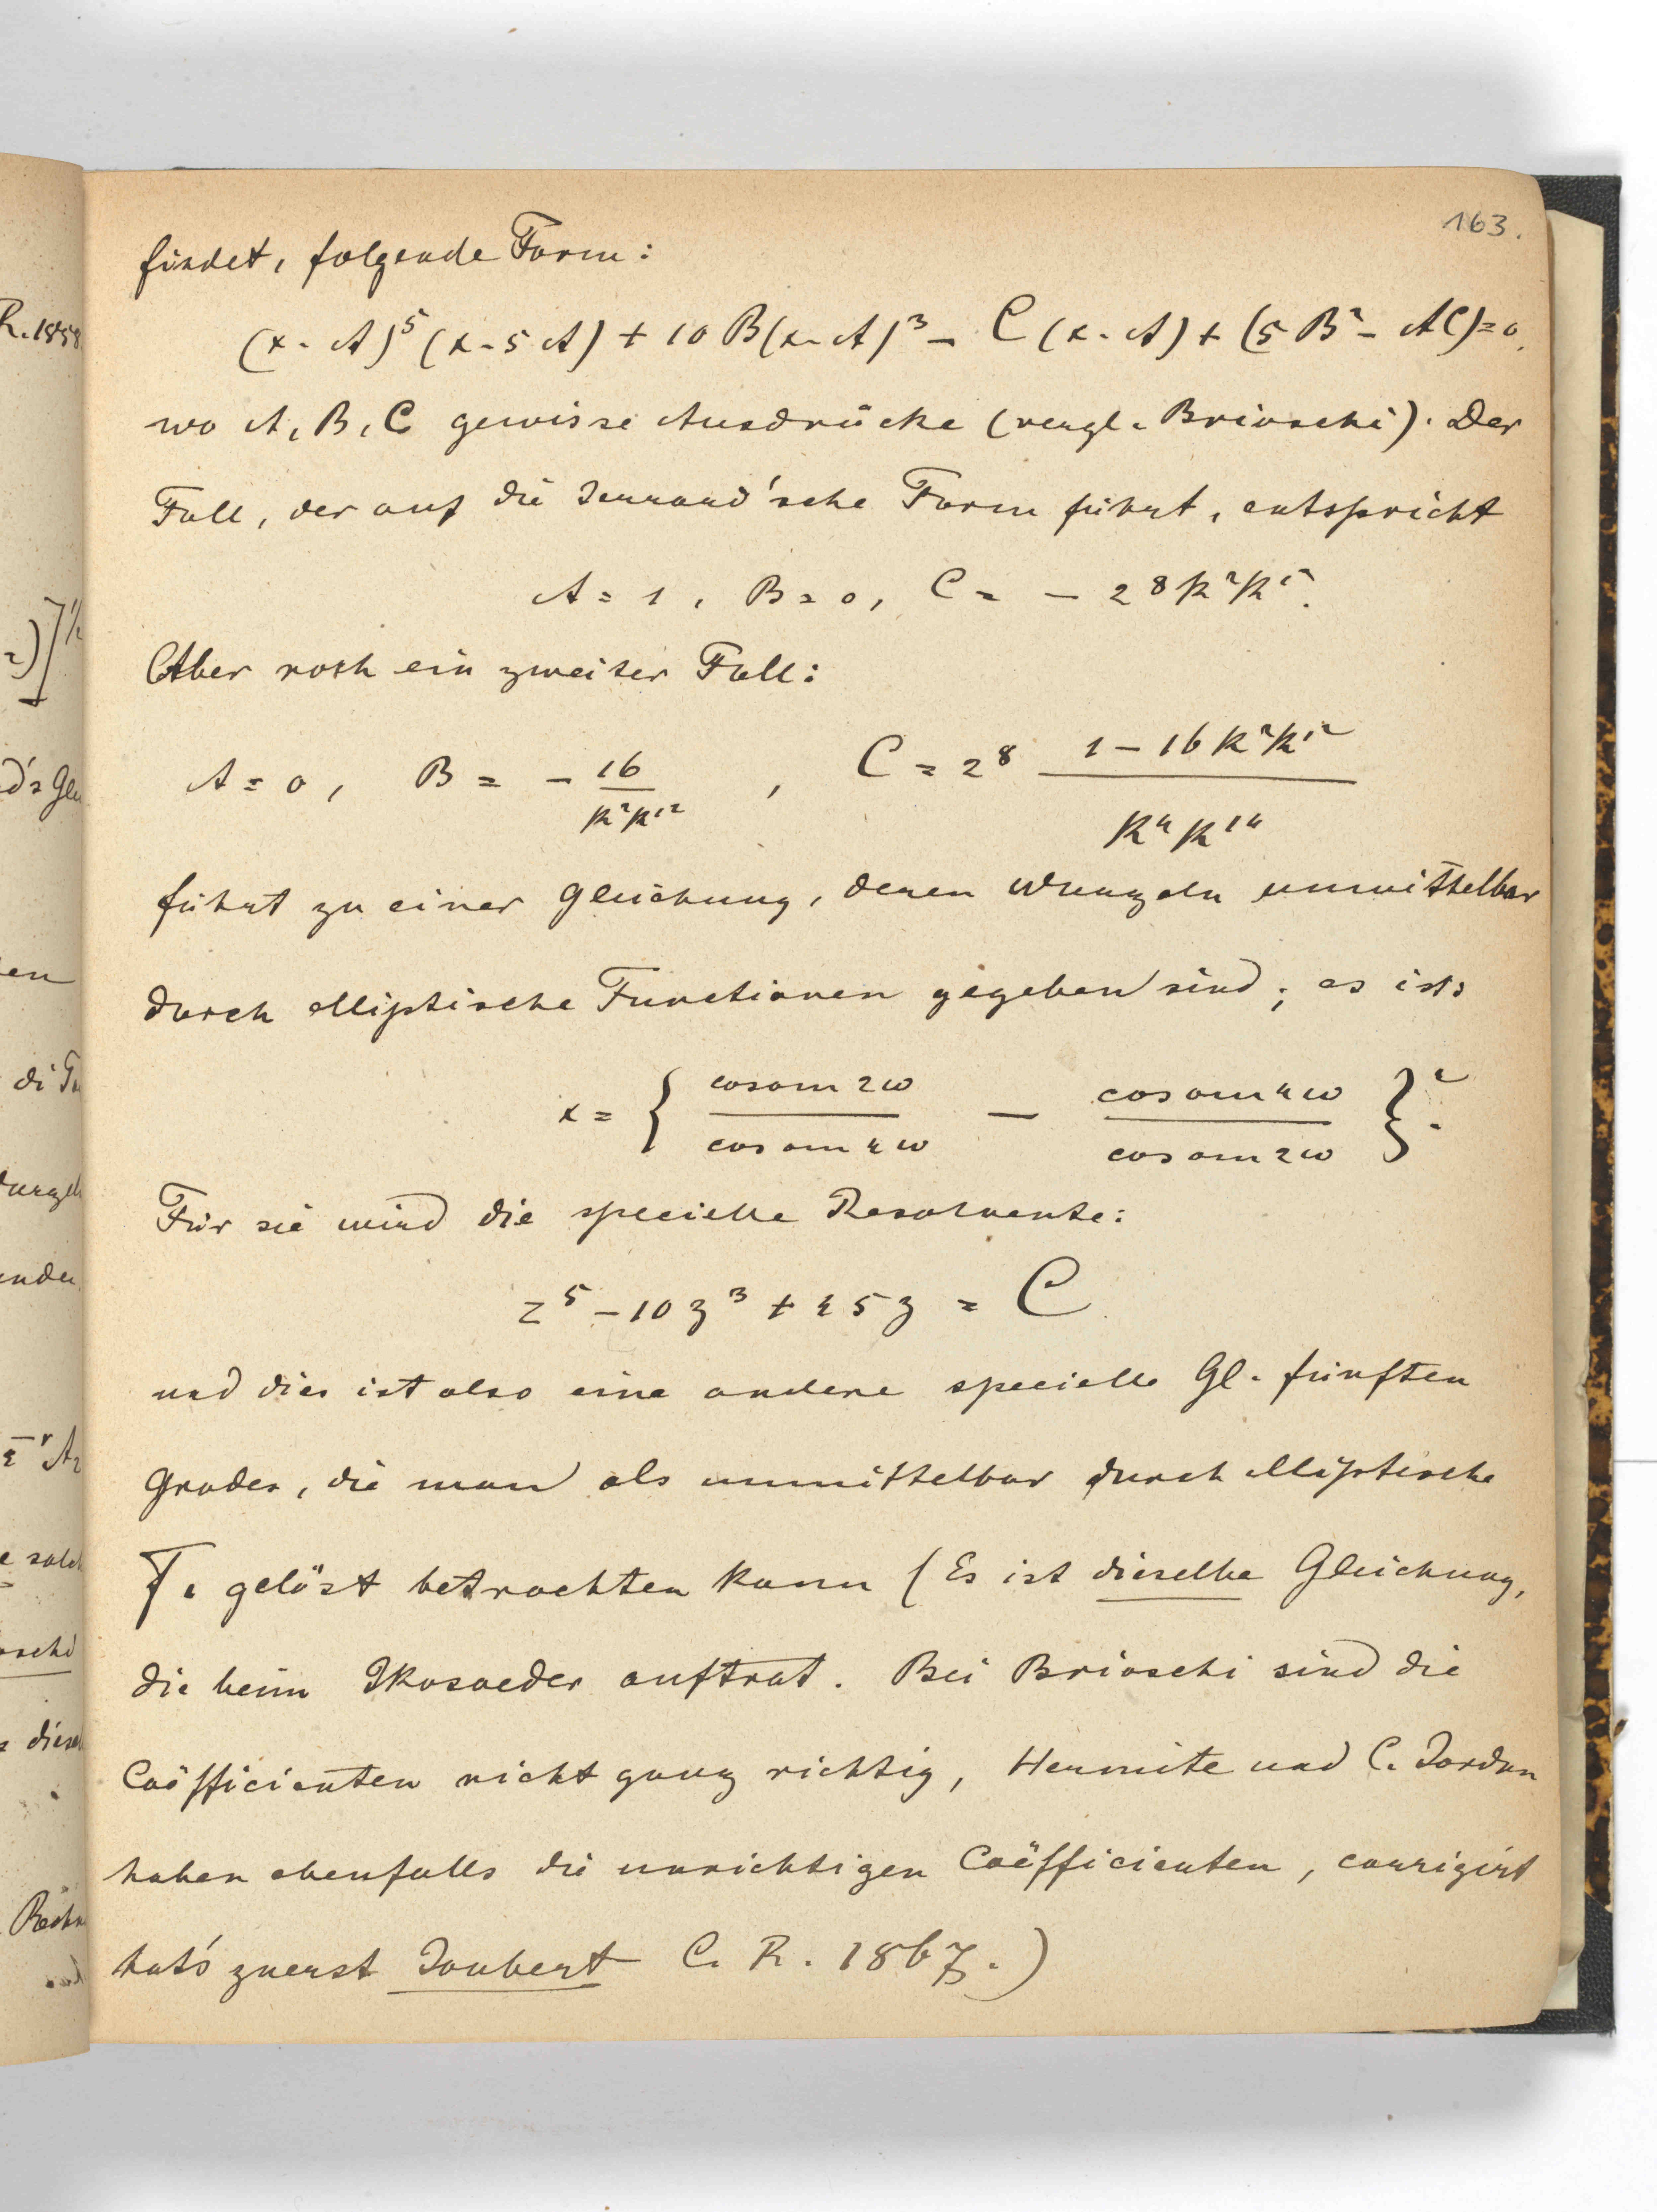 163.
findet, folgende Form:
(x - A)⁵ (x - 5 A) + 10 B (x - A)³ - C (x - A) + (5 B² - AC) = 0,
wo A, B, C gewisse Ausdrücke (vergl. Brioschi). Der
Fall, der auf die Jerrard'sche Form führt, entspricht
A = 1, B = 0, C = - 2⁸ k² k'².
Aber noch ein zweiter Fall:
A = 0, B = - 16/(k² k'²), C = 2⁸ (1 - 16 k² k'²)/(k⁴ k'⁴)
führt zu einer Gleichung, deren Wurzeln unmittelbar
durch elliptische Functionen gegeben sind; es ist:
x = { cos am 2ω / cos am 4ω - cos am 4ω / cos am 2ω }².
Für sie wird die specielle Resolvente:
z⁵ - 10 z³ + 45 z = C
und dies ist also eine andere specielle Gl. fünften
Grades, die man als unmittelbar durch elliptische
F. gelöst betrachten kann (Es ist dieselbe Gleichung,
die beim Ikosaeder auftrat. Bei Brioschi sind die
Coëfficienten nicht ganz richtig, Hermite und C. Jordan
haben ebenfalls die unrichtigen Coëfficienten, corrigirt
hat's zuerst Joubert C. R. 1867.)